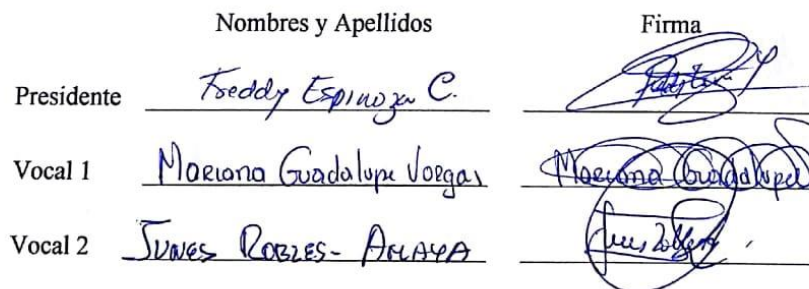 Nombres y Apellidos Firma
Presidente Freddy Espinoza C.
Vocal 1 Mariana Guadalupe Vargas Mariana Guadalupe
Vocal 2 Robles - Amaya